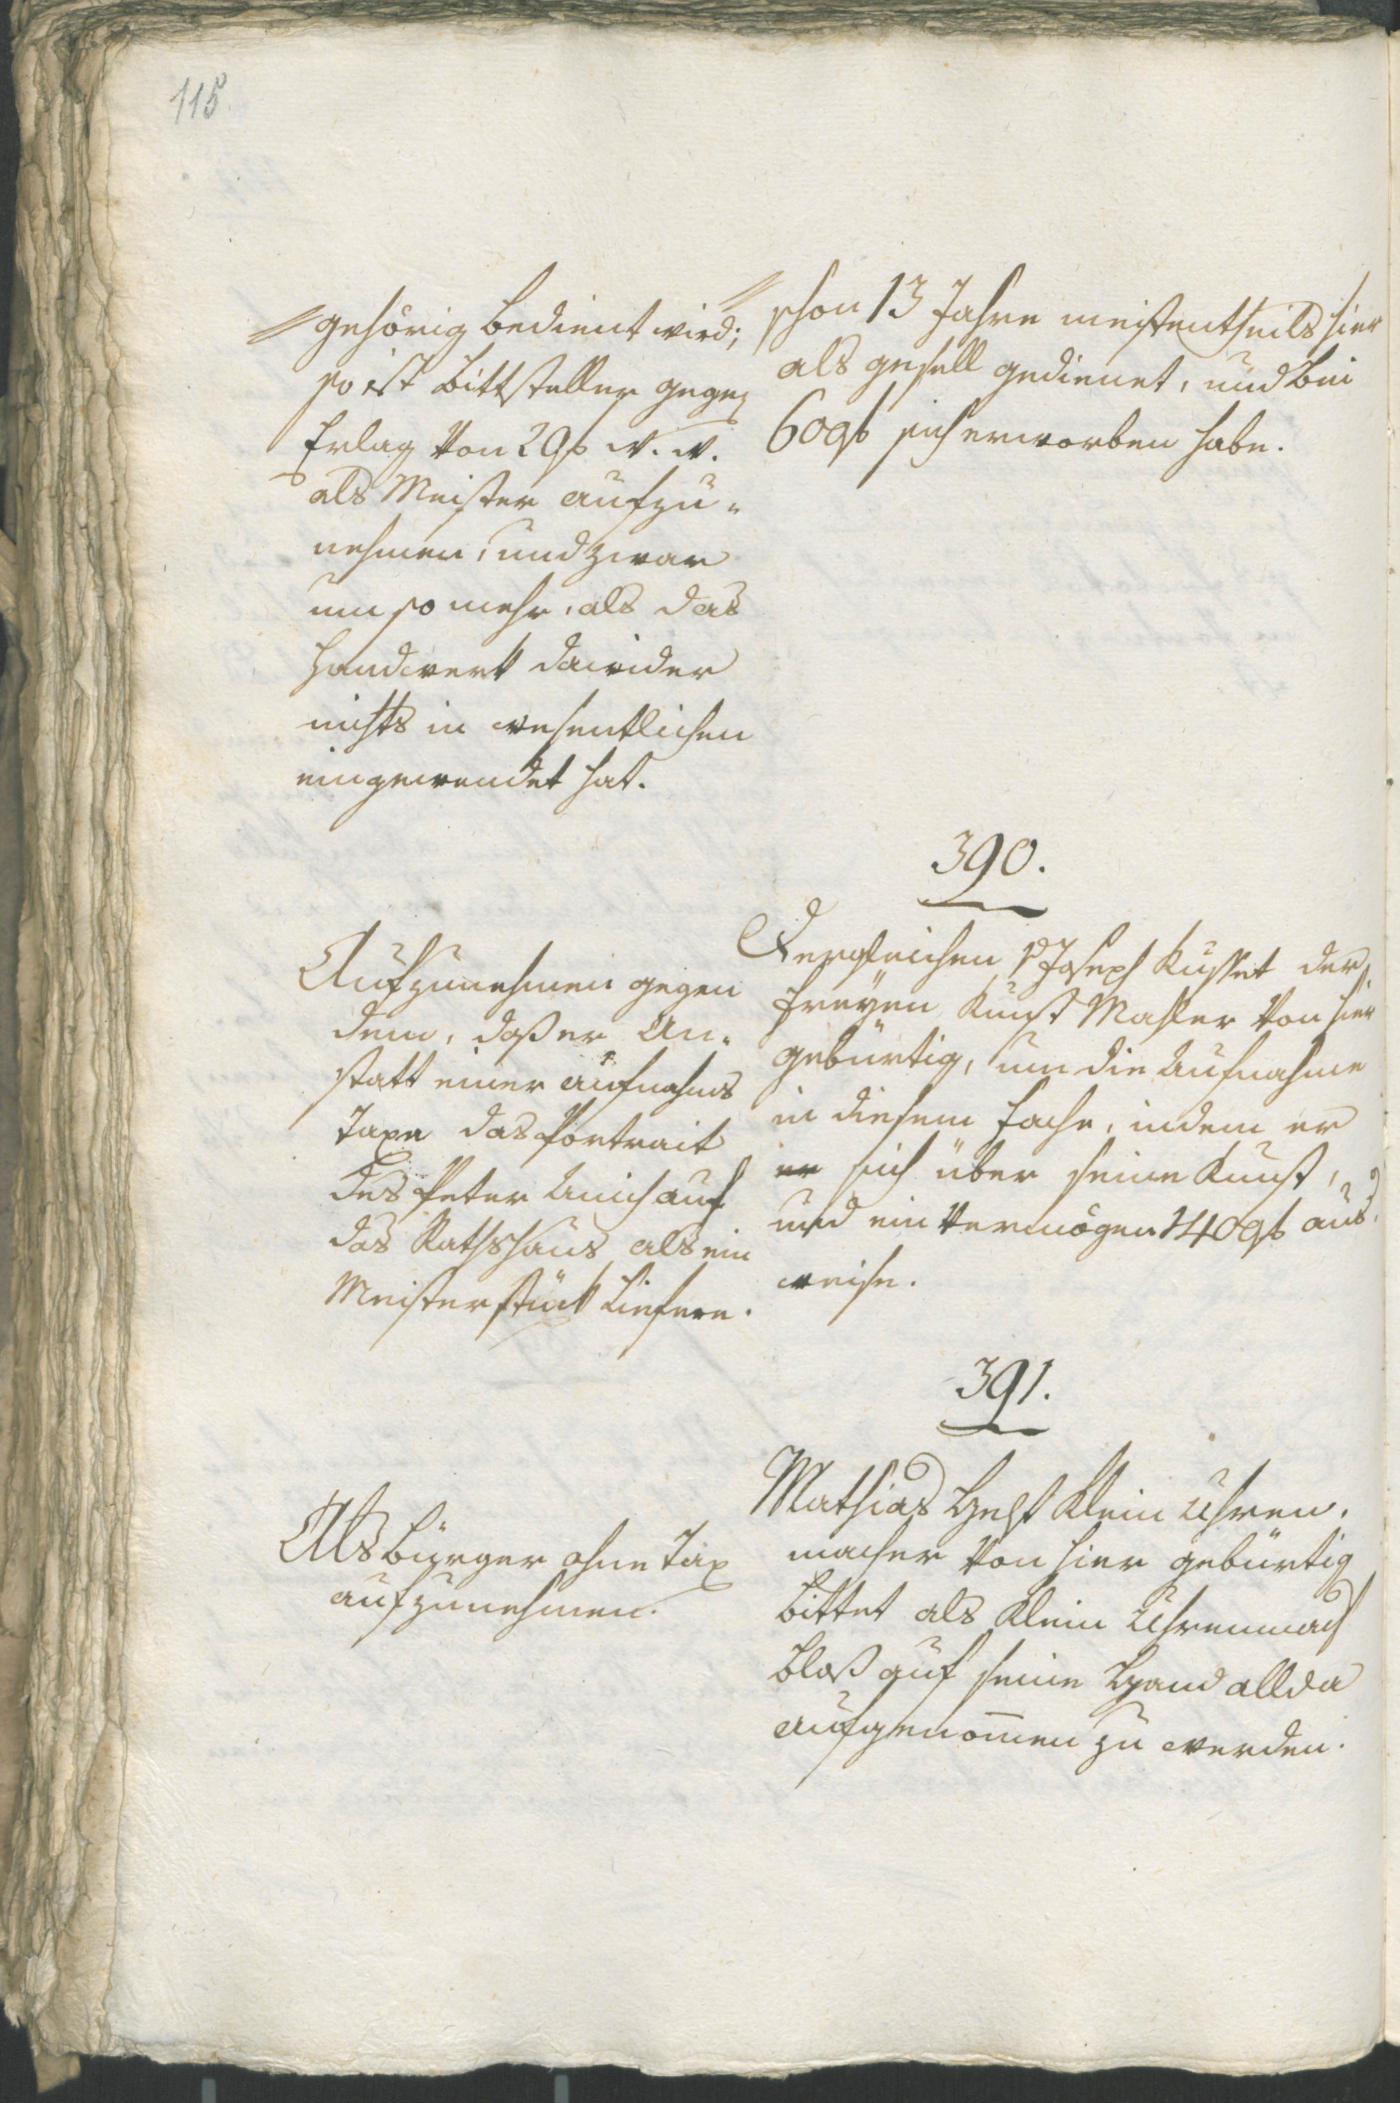 115.
gehörig bedient wird;
so ist Bittsteller gegen
Erlag von 29 f W. W.
als Meister aufzu-
nehmen, und zwar
um so mehr, als das
Handwerk dawider
nichts in wesentlichen
eingewendet hat.
schon 13 Jahre meistentheils hier
als gesell gedienet, und bei
60 f sich erworben habe.
390.
Aufzunehmen gegen
dem, daß er An-
statt einer aufnahms
Taxe das Portrait
des Peter Anich auf
das Rathshaus als ein
Meisterstück liefere.
Dergleichen Joseph der
freyen Kunst Mahler von hier
gebürtig, um die Aufnahme
in diesem Fache, indem er
er sich über seine Kunst,
und ein Vermögen 140 f aus-
weise.
391.
Als Bürger ohne Tax
aufzunehmen.
Mathias Klein Uhren-
macher von hier gebürtig
bittet als Klein Uhrenmach
bloß auf seine Hand allda
aufgenommen zu werden.